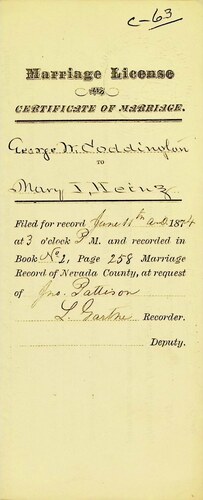 C-63
Marriage License
AND
CERTIFICATE OF MARRIAGE.
George W. Coddington
TO
Mary J. Heinz
Filed for record June 11th A.D. 1874
at 3 o'clock P. M. and recorded in
Book No 2, Page 258 Marriage
Record of Nevada County, at request
of Jno. Pattison
L. Garthe Recorder.
Deputy.